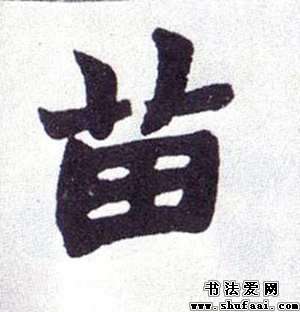 苗
书法爱网
www.shufaai.com